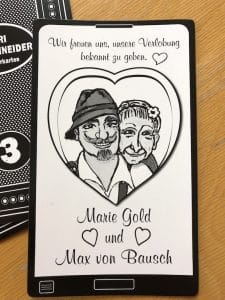 RI
NEIDER
rkarten
3
Wir freuen uns, unsere Verlobung
bekannt zu geben.
Marie Gold
und
Max von Bausch